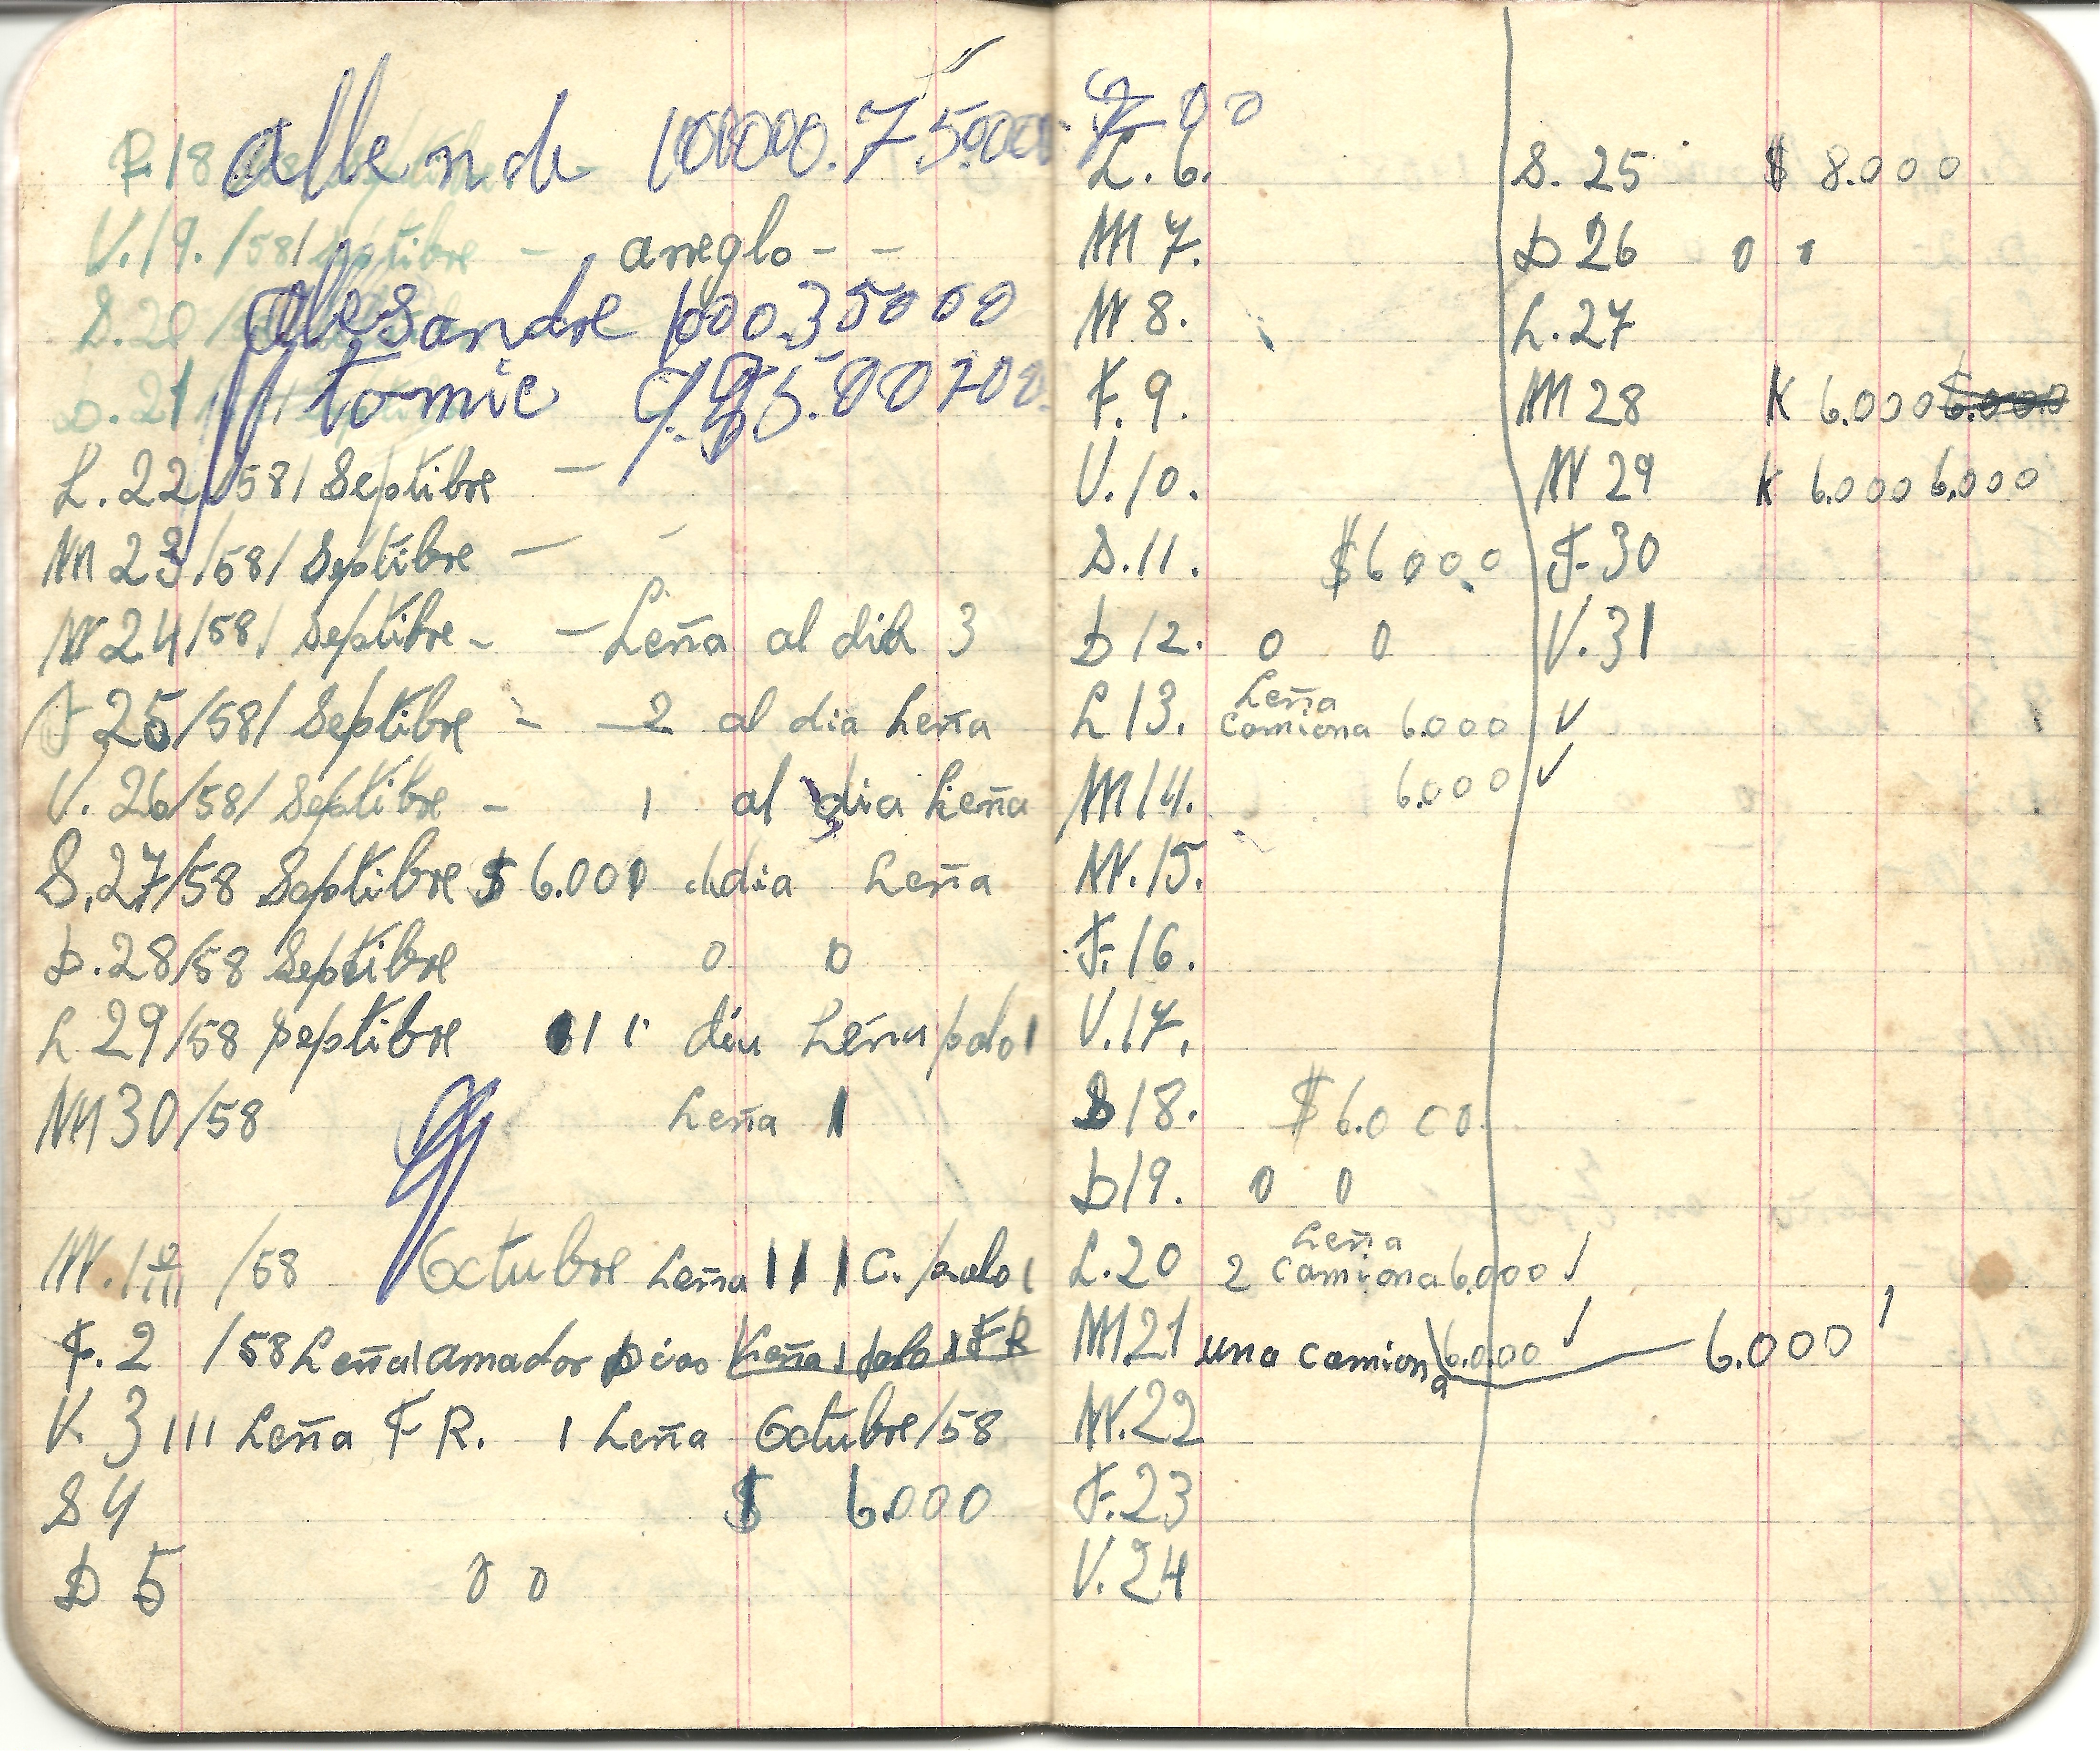 allende 100000.75000
F.18
V.19./58/ Septibre - arreglo - -
S.20/
alesandre 100035000
D.21
tomic
L.22/58/ Septibre -
M 23/58/ Septibre - -
W 24/58/ Septibre - - Leña al dia 3
J 25/58/ Septibre - - 2 al dia Leña
V. 26/58/ Septibre - 1 al dia Leña
S.27/58 Septibre $ 6.000 dia Leña
D.28/58 Septibre 0 0
L 29/58 Septibre 111 dia Leña palo 1
M 30/58 Leña 1
W. 1º /58 Octubre Leña 111 C. palo 1
F.2 /58 Leña 1 amador Dias Leña 1 palo 1 F R
V. 3 111 Leña F R. 1 Leña Octubre/58
S 4 $ 6.000
D 5 0 0
00
L. 6.
M 7.
W 8.
F. 9.
V. 10.
S. 11. $ 6000
D 12. 0 0
L 13. Leña
camiona 6.000 ✓
M 14. 6.000 ✓
W. 15.
F. 16.
V. 17.
S 18. $ 6.000
D 19. 0 0
L. 20 Leña
2 camiona 6.000 ✓
M 21 una camiona 6.000 ✓ 6.000
W. 22
F. 23
V. 24
S. 25 $ 8.000
D 26 0 0
L. 27
M 28 K 6.000 6.000
W 29 K 6.000 6.000
F. 30
V. 31